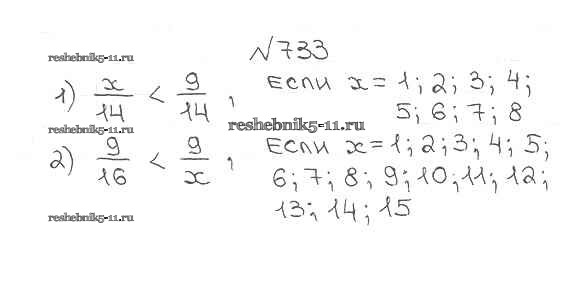 №733
reshebnik5-11.ru
1) x/14 < 9/14, Если x = 1; 2; 3; 4;
5; 6; 7; 8
reshebnik5-11.ru
reshebnik5-11.ru
2) 9/16 < 9/x, Если x = 1; 2; 3; 4; 5;
6; 7; 8; 9; 10; 11; 12;
13; 14; 15
reshebnik5-11.ru